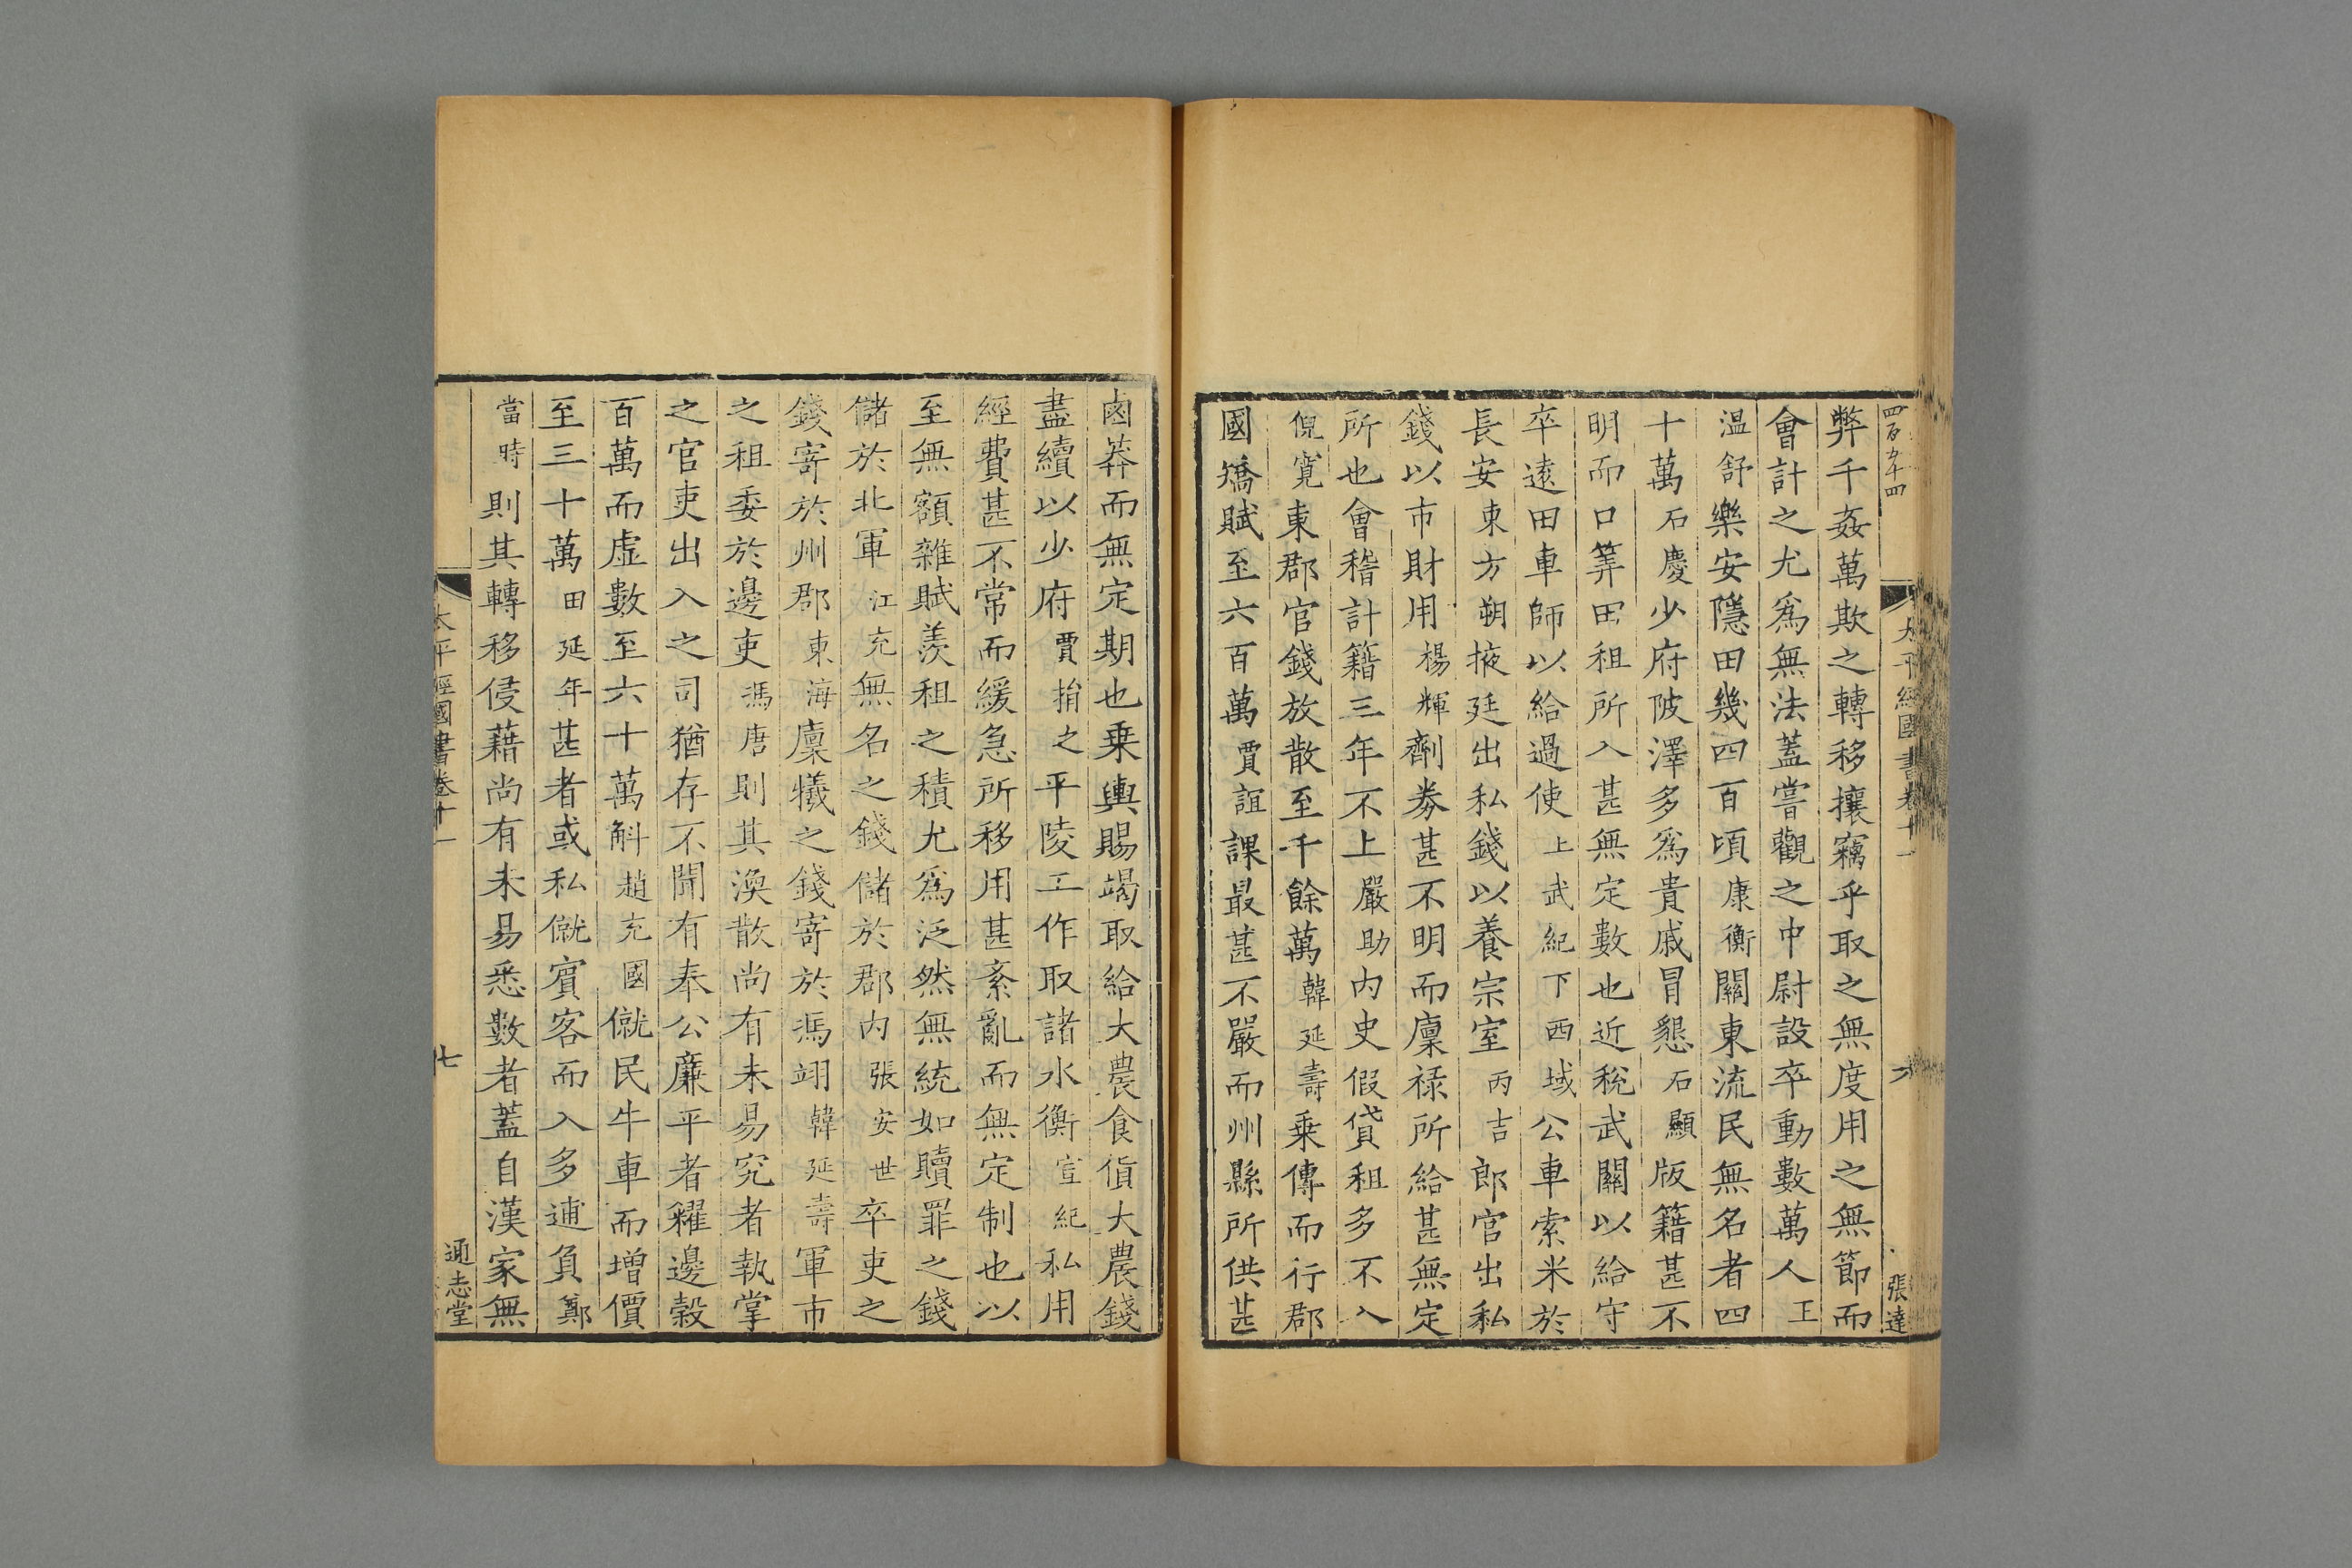 四百五十四
太平經國書卷十一
六
張達
弊千姦萬欺之轉移攘竊乎取之無度用之無節而
會計之尤爲無法蓋嘗觀之中尉設卒動數萬人王
温舒樂安隱田幾四百頃康衡關東流民無名者四
十萬石慶少府陂澤多爲貴戚冒懇石顯版籍甚不
明而口筭田租所入甚無定數也近稅武關以給守
卒遠田車師以給過使上武紀下西域公車索米於
長安東方朔掖廷出私錢以養宗室丙吉郎官出私
錢以市財用楊輝劑劵甚不明而廩祿所給甚無定
所也會稽計籍三年不上嚴助内史假貸租多不入
倪寬東郡官錢放散至千餘萬韓延壽乗傳而行郡
國矯賦至六百萬賈誼課最甚不嚴而州縣所供甚
鹵莽而無定期也乗輿賜竭取給大農食貨大農錢
盡續以少府賈捐之平陵工作取諸水衡宣紀私用
經費甚不常而緩急所移用甚紊亂而無定制也以
至無額雜賦羨租之積尤爲泛然無統如贖罪之錢
儲於北軍江充無名之錢儲於郡内張安世卒吏之
錢寄於州郡東海廩犧之錢寄於馮翊韓延壽軍市
之租委於邊吏馮唐則其渙散尚有未易究者執掌
之官吏出入之司猶存不聞有奉公廉平者糴邊穀
百萬而虚數至六十萬斛趙充國僦民牛車而增價
至三十萬田延年甚者或私僦賓客而入多逋負鄭
當時則其轉移侵藉尚有未易悉數者蓋自漢家無
太平經國書卷十一
七
通志堂